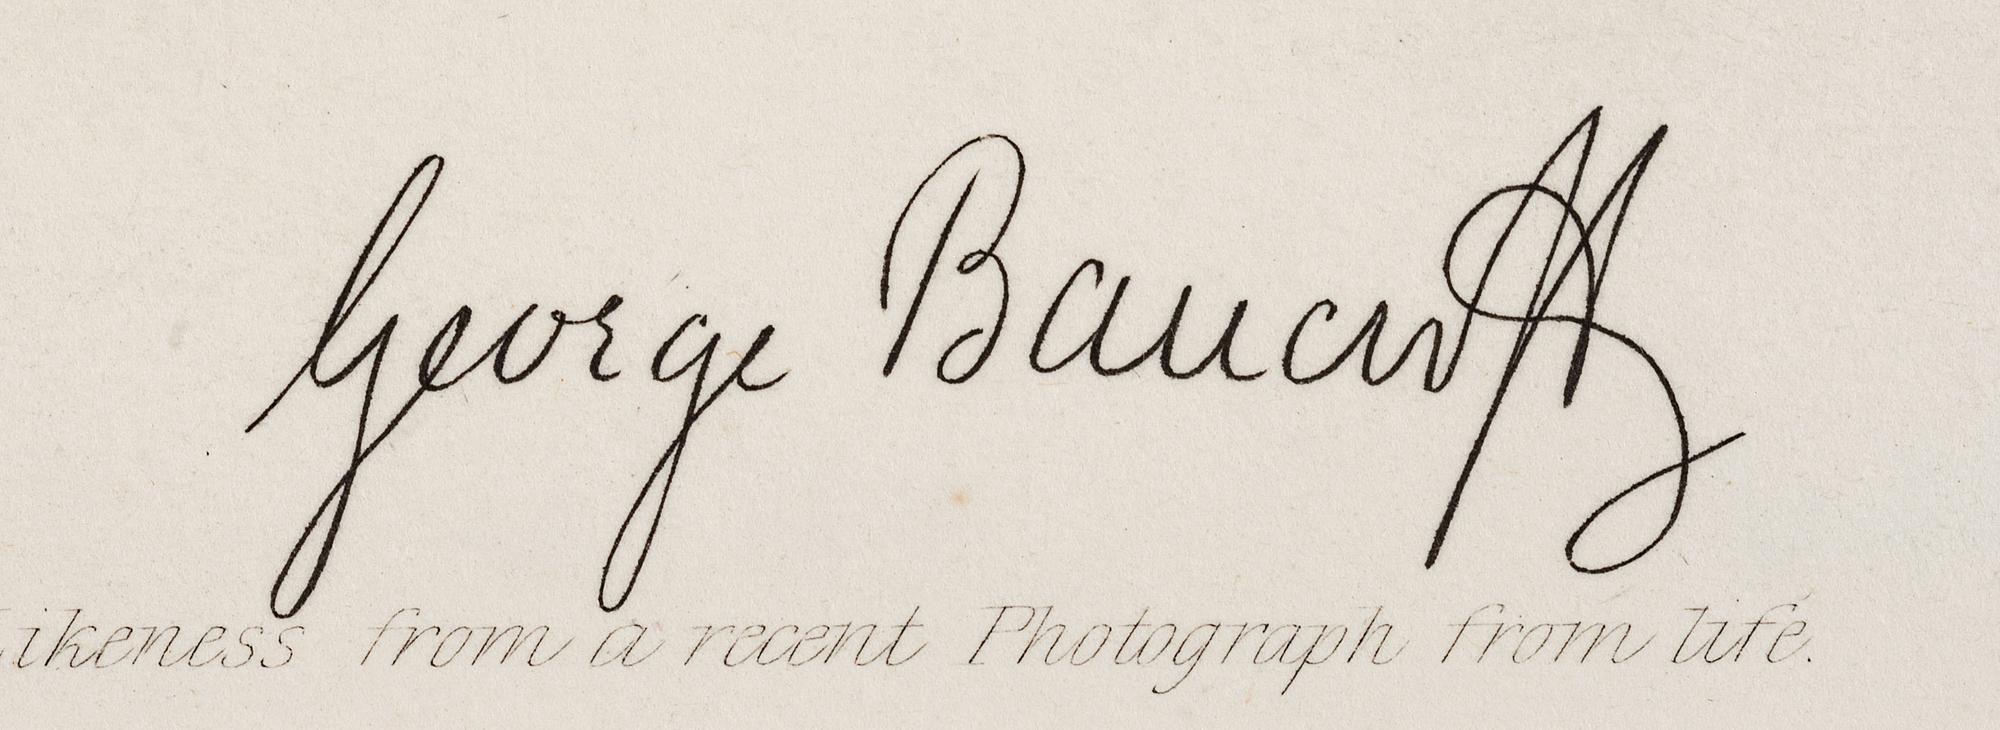 George Bancroft
Likeness from a recent Photograph from life.